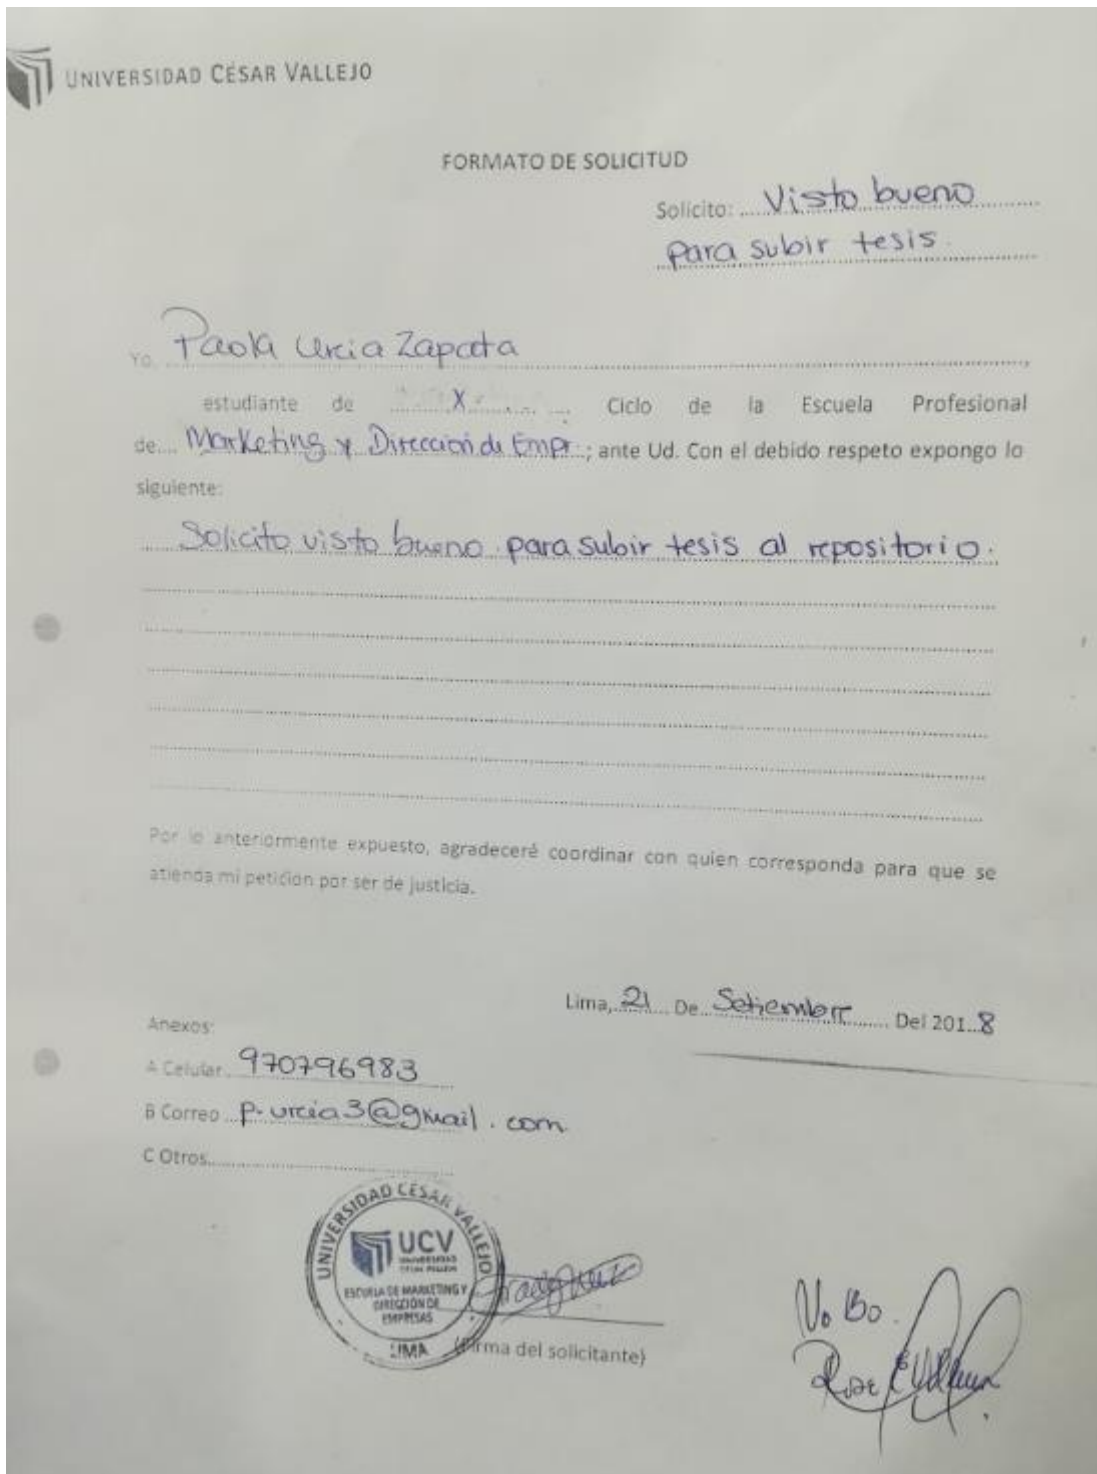 UNIVERSIDAD CÉSAR VALLEJO
FORMATO DE SOLICITUD
Solicito: Visto bueno
para subir tesis.
Yo, Paola Urcia Zapata
estudiante de X Ciclo de la Escuela Profesional
de Marketing y Dirección de Empr.; ante Ud. Con el debido respeto expongo lo
siguiente:
Solicito visto bueno para subir tesis al repositorio.
Por lo anteriormente expuesto, agradeceré coordinar con quien corresponda para que se
atienda mi peticion por ser de justicia.
Lima, 21 De Setiembre Del 2018
Anexos:
A Celular 970796983
B Correo p.urcia3@gmail.com
C Otros
UNIVERSIDAD CÉSAR VALLEJO
UCV
UNIVERSIDAD
CÉSAR VALLEJO
ESCUELA DE MARKETING Y
DIRECCIÓN DE
EMPRESAS
LIMA
(Firma del solicitante)
Vo Bo.